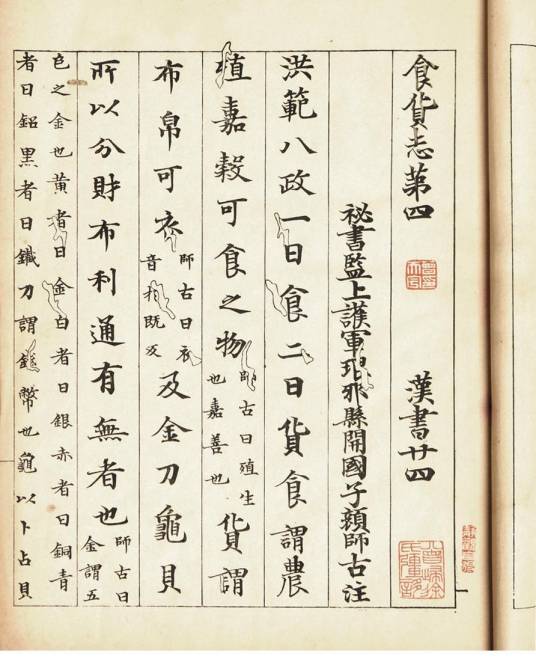 食貨志第四 漢書廿四
祕書監上護軍琅邪縣開國子顔師古注
洪範八政一曰食二曰貨食謂農
殖嘉穀可食之物師古曰殖生也嘉善也貨謂
布帛可衣師古曰衣音於既反及金刀龜貝
所以分財布利通有無者也師古曰金謂五
色之金也黄者曰金白者曰銀赤者曰銅青
者曰鉛黑者曰鐵刀謂錢幣也龜以卜占貝